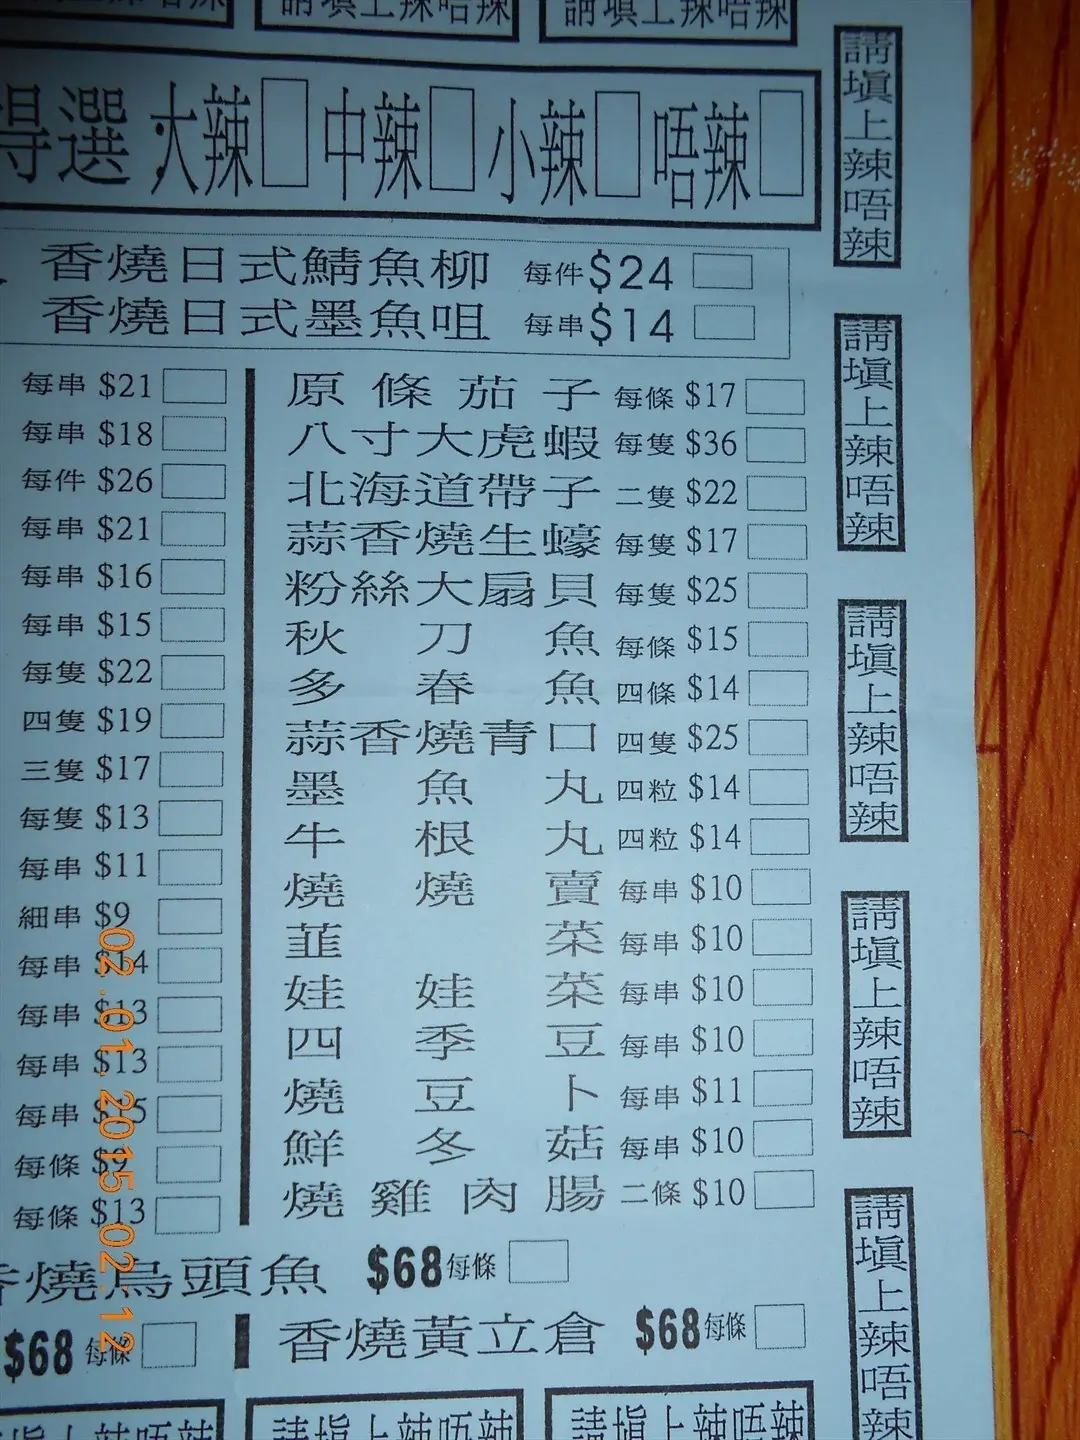 請填上辣唔辣
請填上辣唔辣
得選 大辣 中辣 小辣 唔辣
香燒日式鯖魚柳 每件$24
香燒日式墨魚咀 每串$14
每串 $21
每串 $18
每件 $26
每串 $21
每串 $16
每串 $15
每隻 $22
四隻 $19
三隻 $17
每隻 $13
每串 $11
細串 $9
每串 $14
每串 $13
每串 $13
每串 $15
每條 $9
每條 $13
原條茄子 每條 $17
八寸大虎蝦 每隻 $36
北海道帶子 二隻 $22
蒜香燒生蠔 每隻 $17
粉絲大扇貝 每隻 $25
秋刀魚 每條 $15
多春魚 四條 $14
蒜香燒青口 四隻 $25
墨魚丸 四粒 $14
牛根丸 四粒 $14
燒燒賣 每串 $10
韮菜 每串 $10
娃娃菜 每串 $10
四季豆 每串 $10
燒豆卜 每串 $11
鮮冬菇 每串 $10
燒雞肉腸 二條 $10
香燒烏頭魚 $68每條
$68 每條
香燒黃立倉 $68每條
請填上辣唔辣
請填上辣唔辣
請填上辣唔辣
請填上辣唔辣
請填上辣唔辣
請填上辣唔辣
請填上辣唔辣
請填上辣唔辣
02.01.2015 02:12